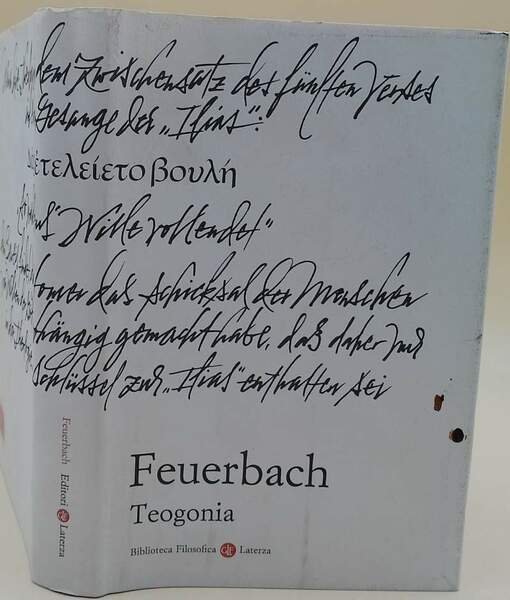 dem Zwischensatz des fünften Verses
Gesange der „Ilias“:
ἐτελείετο βουλή
Wille vollendet“
das Schicksal der Menschen
gemacht habe, daß daher nur
Schlüssel zur „Ilias“ enthalten sei
Feuerbach
Teogonia
Biblioteca Filosofica GLF Laterza
Feuerbach Editori GLF Laterza